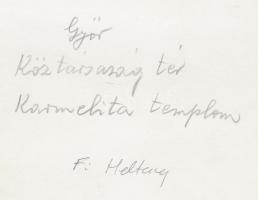 Győr
Köztársaság tér
Karmelita templom
F: Heltay